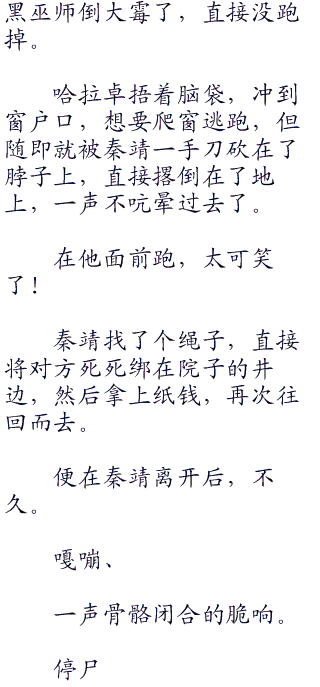 黑巫师倒大霉了，直接没跑
掉。
哈拉卓捂着脑袋，冲到
窗户口，想要爬窗逃跑，但
随即就被秦靖一手刀砍在了
脖子上，直接撂倒在了地
上，一声不吭晕过去了。
在他面前跑，太可笑
了！
秦靖找了个绳子，直接
将对方死死绑在院子的井
边，然后拿上纸钱，再次往
回而去。
便在秦靖离开后，不
久。
嘎嘣、
一声骨骼闭合的脆响。
停尸